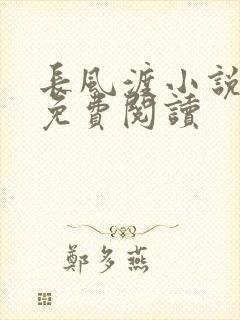 長風渡小說
免費閱讀
鄭多燕